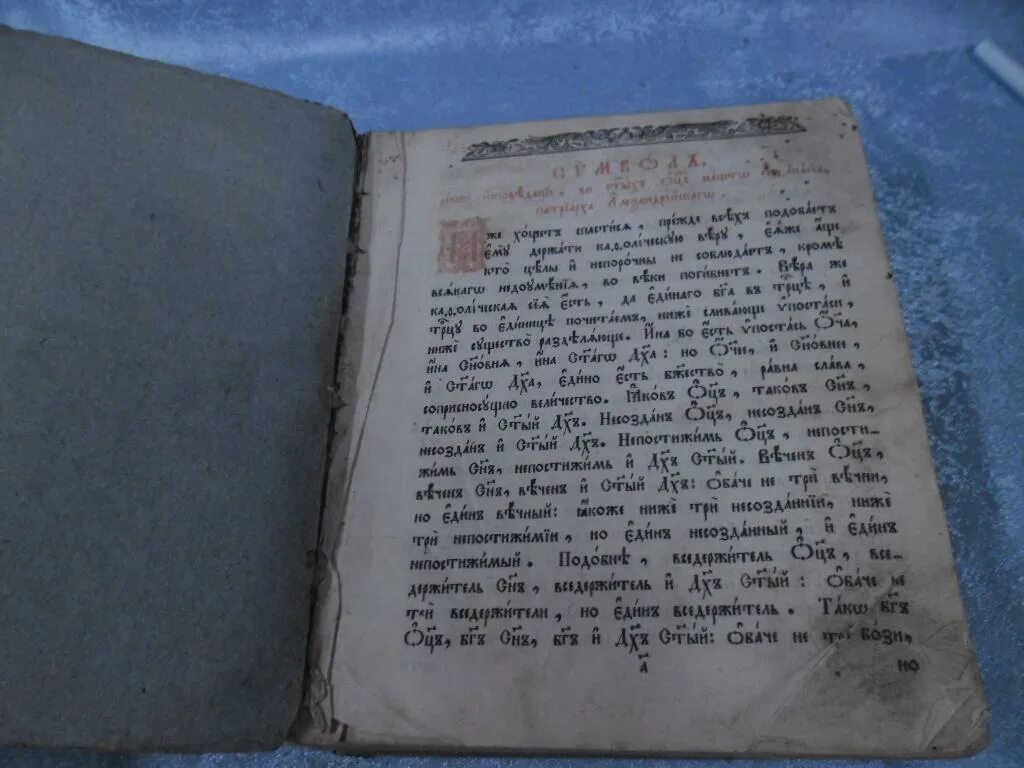 СѶМВОЛЪ.
и҆́же во ст҃ы́хъ ѻ҆тца̀ на́шегѡ
патрїа́рха а҆леѯандрі́йскагѡ.
И҆́же хо́щетъ спасти́сѧ, пре́жде всѣ́хъ подоба́етъ
є҆мꙋ̀ держа́ти каѳоли́ческꙋю вѣ́рꙋ, є҆ѧ́же а҆́ще
кто̀ цѣ́лы и҆ непоро́чны не соблюда́етъ, кромѣ̀
всѧ́кагѡ недоꙋмѣ́нїѧ, во вѣ́ки поги́бнетъ. Вѣ́ра же
каѳоли́ческаѧ сїѧ̀ є҆́сть, да є҆ди́наго бг҃а въ трⷪ҇цѣ, и҆
трⷪ҇цꙋ во є҆ди́ницѣ почита́емъ, нижѐ слива́юще ѵ҆поста́си,
нижѐ сꙋщество̀ раздѣлѧ́юще. И҆́на бо є҆́сть ѵ҆поста́сь Ѻ҆́ча,
и҆́на Сн҃о́внѧ, и҆́на Ст҃а́гѡ Дх҃а: но Ѻ҆́че, и҆ Сн҃о́внее,
и҆ Ст҃а́гѡ Дх҃а, є҆ди́но є҆́сть бжⷭ҇тво̀, ра́вна сла́ва,
соприсносꙋ́щно вели́чество. Ꙗ҆ко́въ Ѻ҆ц҃ъ, тако́въ Сн҃ъ,
тако́въ и҆ Ст҃ы́й Дх҃ъ. Несозда́нъ Ѻ҆ц҃ъ, несозда́нъ Сн҃ъ,
несозда́нъ и҆ Ст҃ы́й Дх҃ъ. Непостижи́мь Ѻ҆ц҃ъ, непости-
жи́мь Сн҃ъ, непостижи́мь и҆ Дх҃ъ Ст҃ы́й. Вѣ́ченъ Ѻ҆ц҃ъ,
вѣ́ченъ Сн҃ъ, вѣ́ченъ и҆ Ст҃ы́й Дх҃ъ: Ѻ҆ба́че не трѝ вѣ́чни,
но є҆ди́нъ вѣ́чный: ꙗ҆́коже нижѐ трѝ несозда́ннїи, нижѐ
трѝ непостижи́мїи, но є҆ди́нъ несозда́нный, и҆ є҆ди́нъ
непостижи́мый. Подо́бнѣ, вседержи́тель Ѻ҆ц҃ъ, все-
держи́тель Сн҃ъ, вседержи́тель и҆ Дх҃ъ Ст҃ы́й: Ѻ҆ба́че не
трѝ вседержи́тели, но є҆ди́нъ вседержи́тель. Та́кѡ бг҃ъ
Ѻ҆ц҃ъ, бг҃ъ Сн҃ъ, бг҃ъ и҆ Дх҃ъ Ст҃ы́й: Ѻ҆ба́че не трѝ бо́зи,
а҃ но